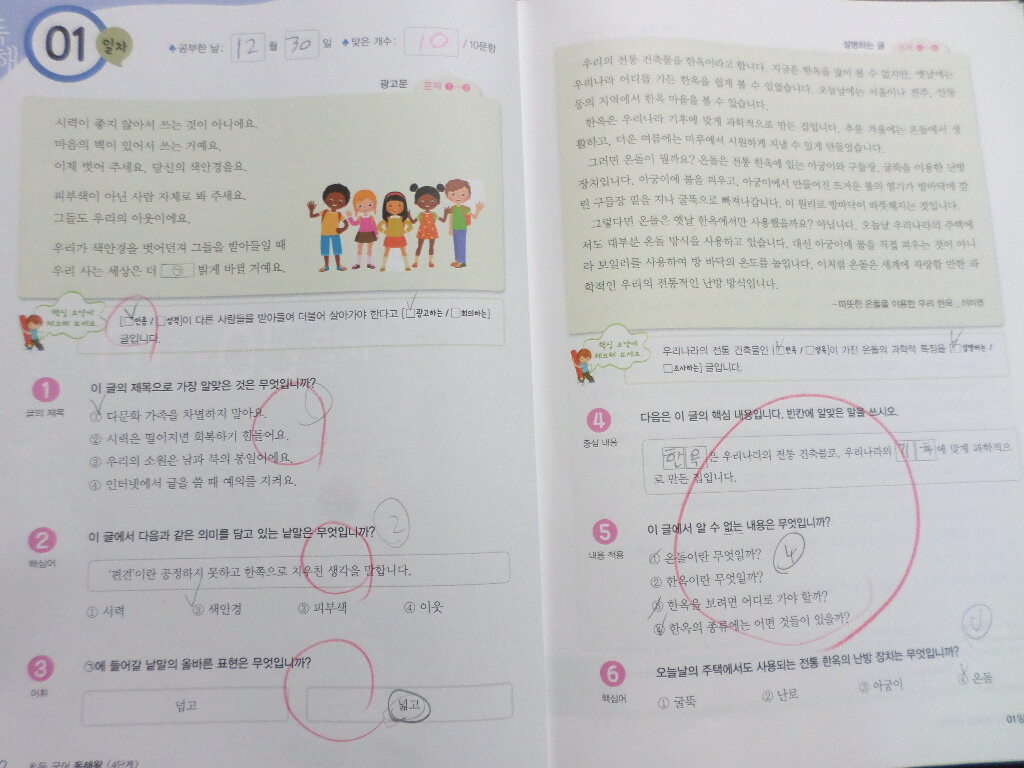 01 일차
♠공부한 날: 12 월 30 일 ♠맞은 개수: 10 / 10문항
광고문 문제 1~3
시력이 좋지 않아서 쓰는 것이 아니에요.
마음의 벽이 있어서 쓰는 거예요.
이제 벗어 주세요. 당신의 색안경을요.
피부색이 아닌 사람 자체로 봐 주세요.
그들도 우리의 이웃이에요.
우리가 색안경을 벗어던져 그들을 받아들일 때
우리 사는 세상은 더 ㉠ 밝게 바뀔 거예요.
핵심 요약에
체크해 보세요
[□인종 / □성격]이 다른 사람들을 받아들여 더불어 살아가야 한다고 [□광고하는 / □회의하는]
글입니다.
1 이 글의 제목으로 가장 알맞은 것은 무엇입니까?
글의 제목
① 다문화 가족을 차별하지 말아요.
② 시력은 떨어지면 회복하기 힘들어요.
③ 우리의 소원은 남과 북의 통일이에요.
④ 인터넷에서 글을 쓸 때 예의를 지켜요.
2 이 글에서 다음과 같은 의미를 담고 있는 낱말은 무엇입니까? 2
핵심어
'편견'이란 공정하지 못하고 한쪽으로 치우친 생각을 말합니다.
① 시력 ② 색안경 ③ 피부색 ④ 이웃
3 ㉠에 들어갈 낱말의 올바른 표현은 무엇입니까?
어휘
넙고 넓고
초등 국어 독해왕 (4단계)
설명하는 글 문제 4~6
우리의 전통 건축물을 한옥이라고 합니다. 지금은 한옥을 많이 볼 수 없지만, 옛날에는
우리나라 어디를 가든 한옥을 쉽게 볼 수 있었습니다. 오늘날에는 서울이나 전주, 안동
등의 지역에서 한옥 마을을 볼 수 있습니다.
한옥은 우리나라 기후에 맞게 과학적으로 만든 집입니다. 추운 겨울에는 온돌에서 생
활하고, 더운 여름에는 마루에서 시원하게 지낼 수 있게 만들었습니다.
그러면 온돌이 뭘까요? 온돌은 전통 한옥에 있는 아궁이와 구들장, 굴뚝을 이용한 난방
장치입니다. 아궁이에 불을 피우고, 아궁이에서 만들어진 뜨거운 불의 열기가 방바닥에 깔
린 구들장 밑을 지나 굴뚝으로 빠져나갑니다. 이 원리로 방바닥이 따뜻해지는 것입니다.
그렇다면 온돌은 옛날 한옥에서만 사용했을까요? 아닙니다. 오늘날 우리나라의 주택에
서도 대부분 온돌 방식을 사용하고 있습니다. 대신 아궁이에 불을 직접 피우는 것이 아니
라 보일러를 사용하여 방 바닥의 온도를 높입니다. 이처럼 온돌은 세계에 자랑할 만한 과
학적인 우리의 전통적인 난방 방식입니다.
-따뜻한 온돌을 이용한 우리 한옥
핵심 요약에
체크해 보세요
우리나라의 전통 건축물인 [□한옥 / □양옥]이 가진 온돌의 과학적 특징을 [□설명하는 /
□조사하는] 글입니다.
4 다음은 이 글의 핵심 내용입니다. 빈칸에 알맞은 말을 쓰시오.
중심 내용
한옥 은 우리나라의 전통 건축물로, 우리나라의 기후 에 맞게 과학적으
로 만든 집입니다.
5 이 글에서 알 수 없는 내용은 무엇입니까?
내용 적용
① 온돌이란 무엇일까? 4
② 한옥이란 무엇일까?
③ 한옥을 보려면 어디로 가야 할까?
④ 한옥의 종류에는 어떤 것들이 있을까?
6 오늘날의 주택에서도 사용되는 전통 한옥의 난방 장치는 무엇입니까?
핵심어
① 굴뚝 ② 난로 ③ 아궁이 ④ 온돌